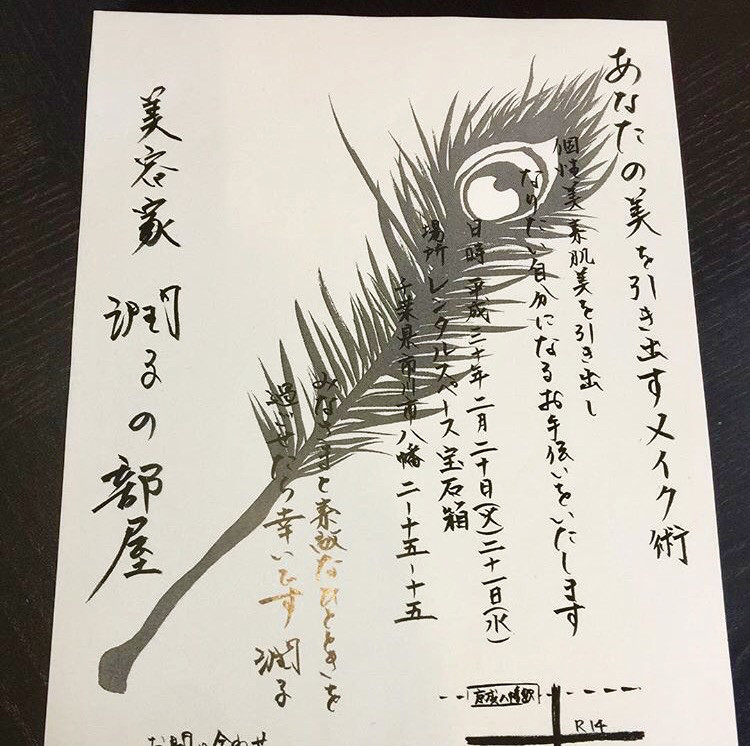 あなたの美を引き出すメイク術
個性美素肌美を引き出し
なりたい自分になるお手伝いをいたします
日時 平成三十年二月二十日(火)二十一日(水)
場所 レンタルスペース宝石箱
千葉県市川市八幡二-十五-十五
みなさまと素敵なひとときを
過ごせたら幸いです 潤子
美容家 潤子の部屋
京成八幡駅
R14
お問い合わせ